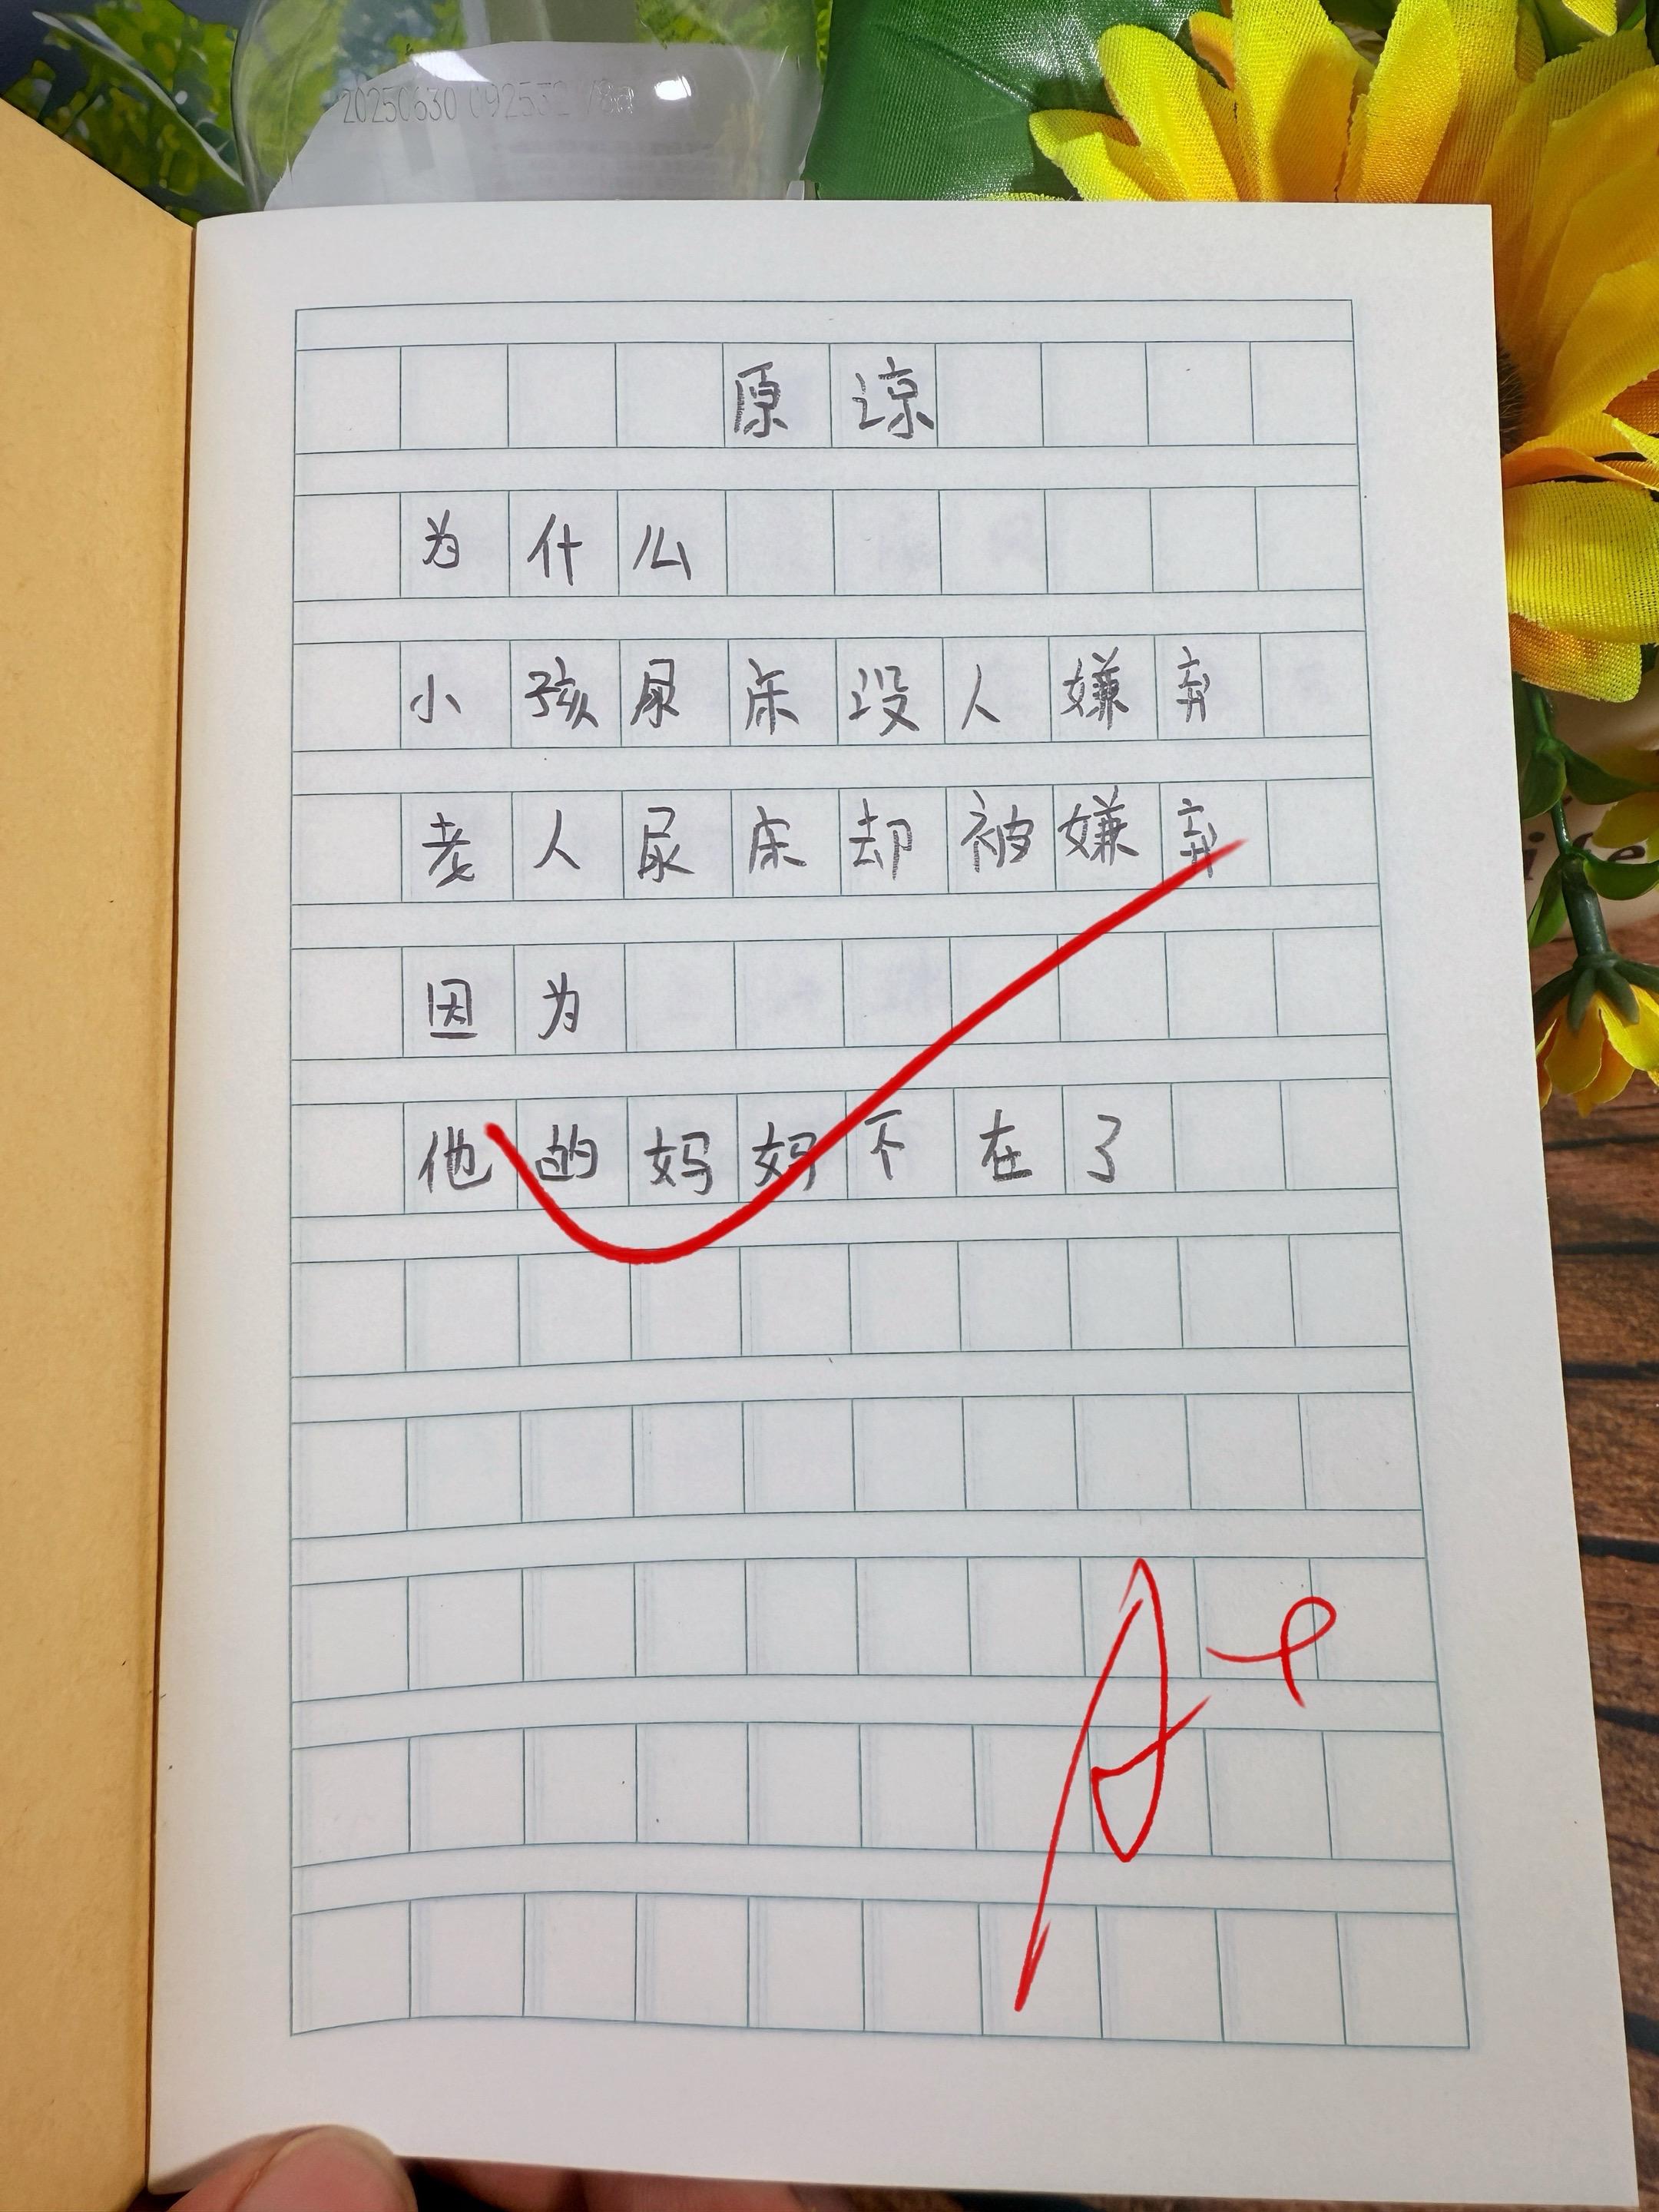 20250630 092532
原谅
为什么
小孩尿床没人嫌弃
老人尿床却被嫌弃
因为
他的妈妈不在了
A+